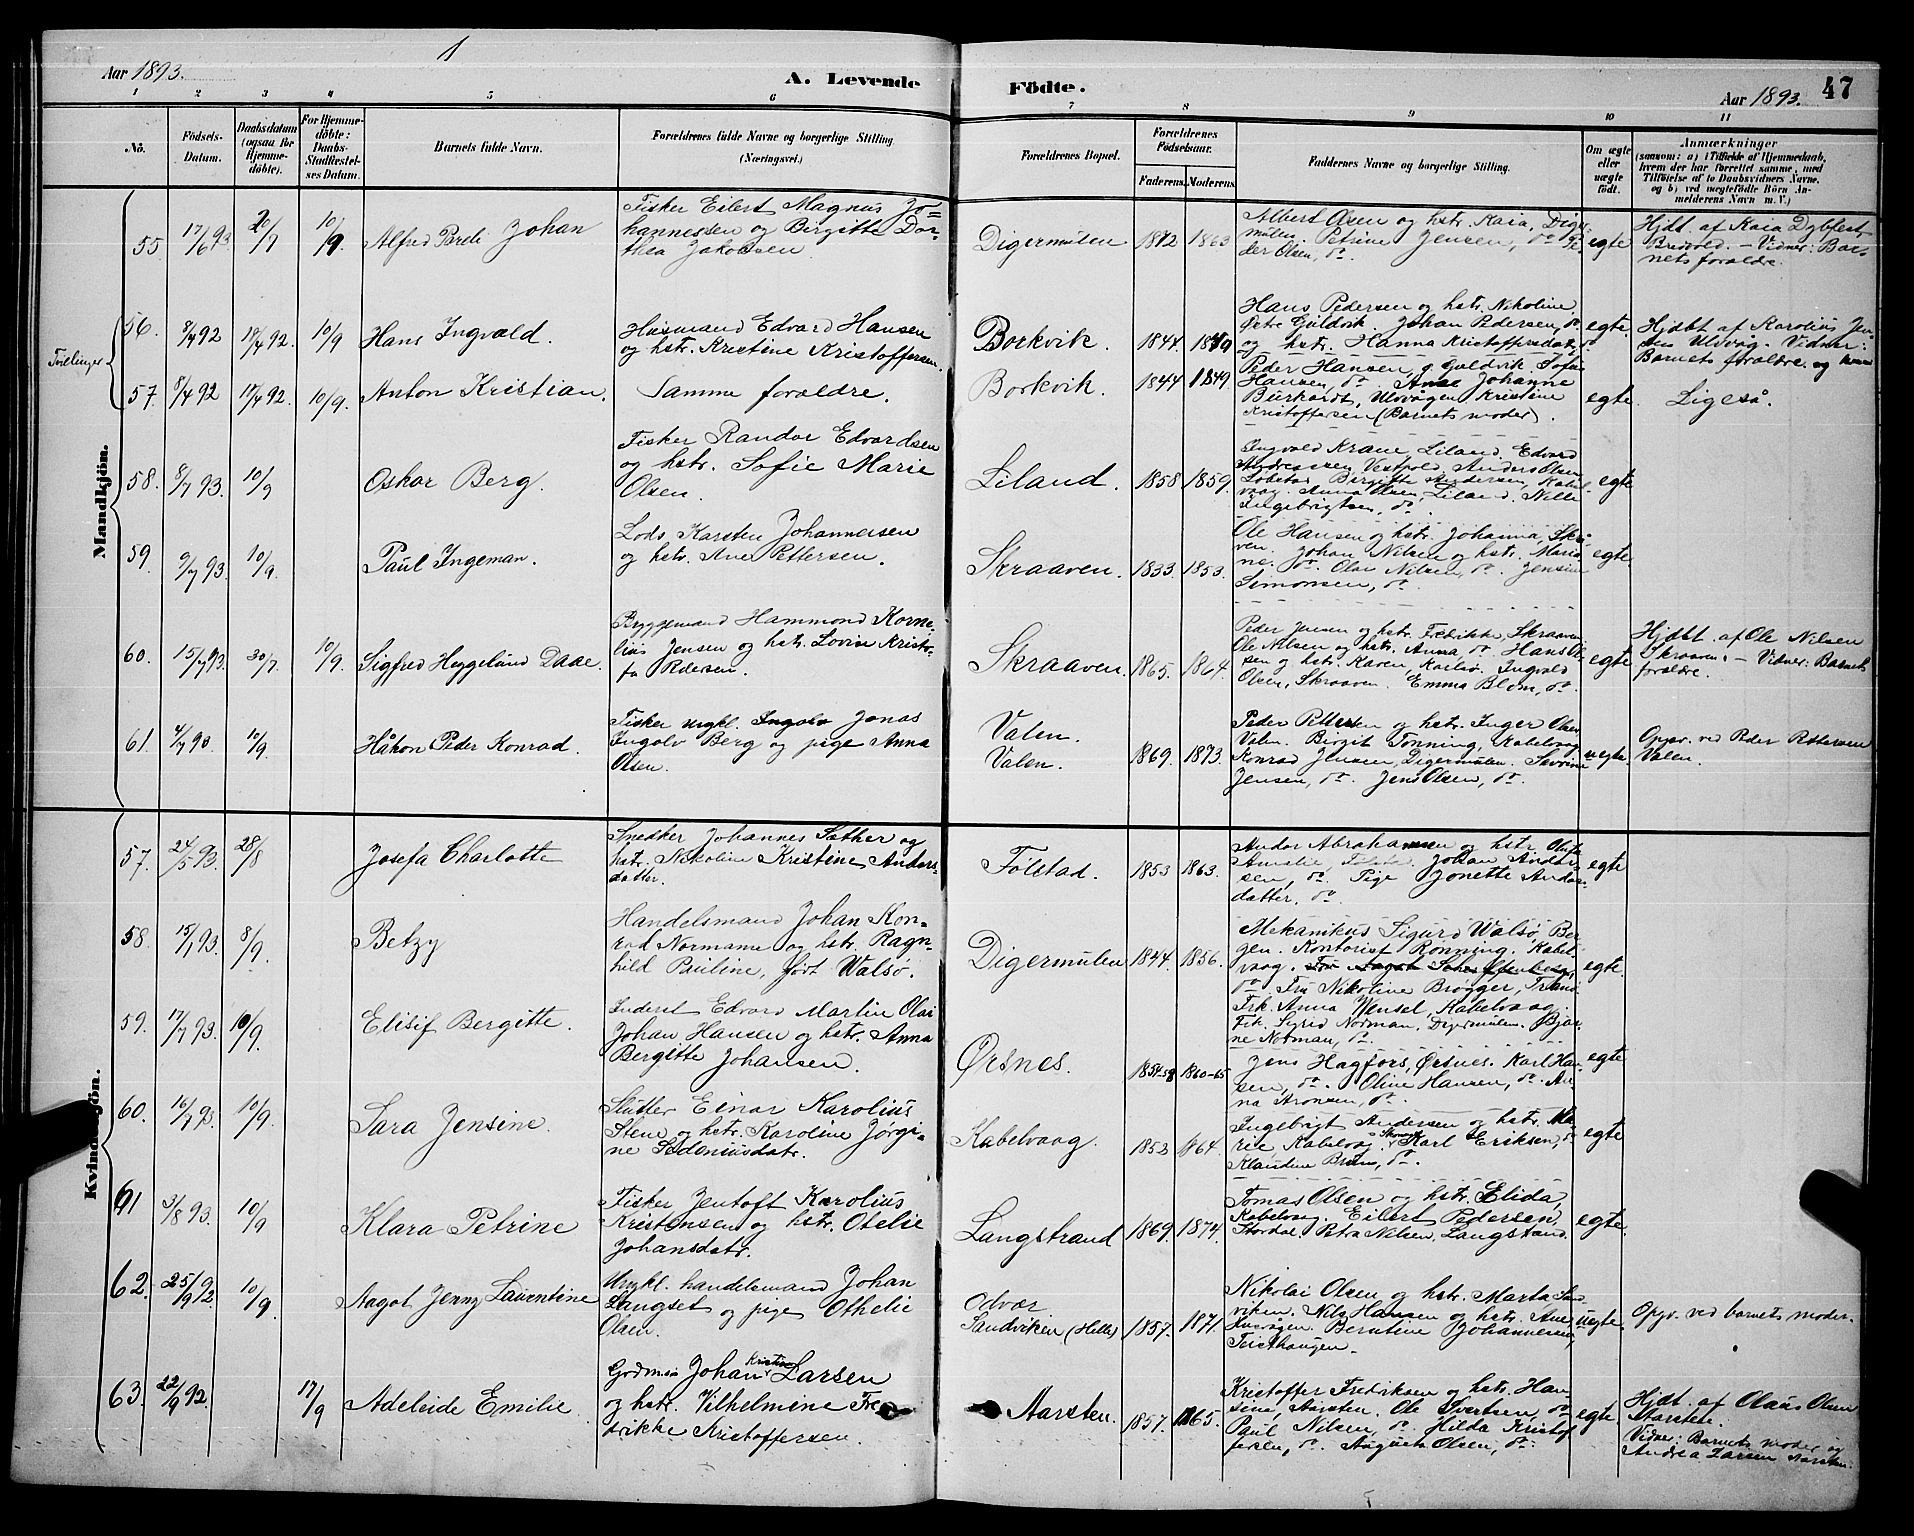 1
Aar 1893.
A. Levende
Fødte.
Aar 1893.
47
1 2 3 4 5 6 7 8 9 10 11
No.
Fødsels-
Datum.
Daabsdatum
(ogsaa for
Hjemme-
døbte).
For Hjemme-
døbte:
Daabs-
Stadfæstel-
ses Datum.
Barnets fulde Navn.
Forældrenes fulde Navne og borgerlige Stilling
(Næringsvei.)
Forældrenes Bopæl.
Forældrenes
Fødselsaar.
Faderens. Moderens.
Faddernes Navne og borgerlige Stilling.
Om ægte
eller
uægte
født.
Anmærkninger
(saasom: a) i Tilfælde af Hjemmedaab,
hvem der har forrettet samme, med
Tilføielse af to Daabsvidners Navne,
og b) ved uægtefødte Børn An-
melderens Navn m. V.)
Mandkjön.
55 17/6 93 10/9 Alfred Johan
Fisker Eilert Magnus Jo=
hannessen og Bergitte Dor-
thea Jakobsen
Digermulen 1872 1863
Albert Olsen og hstr. Kaia, Diger-
mulen. Petrine Jensen, do Pe-
der Olsen, do.
egte
Hjdt. af Kaia Dybfest
Bredvold. – Vidner: Bar-
nets forældre.
Tvillinger
56. 8/4 92 18/4 92. 10/9 Hans Ingvald.
Husmand Edvard Hansen
og hstr. Kristine Kristoffersen.
Borkvik. 1844. 1849
Hans Pedersen og hstr. Nikoline
Østre Guldvik. Johan Pedersen, do.
og hstr. Hanna Kristoffersdatr. do
egte.
Hjdbt af Karolius Jen-
sen Ulvvåg. Vidner:
Barnets forældre. og
57. 8/4 92 18/4 92. 10/9. Anton Kristian.
Samme forældre.
Borkvik. 1844 1849.
Peder Hansen, g. Guldvik. Sofie
Hansen, do. Johanne
Burkardt, Ulvvågen Kristine
Kristoffersen (Barnets moder).
egte. Ligeså.
58. 8/7 93. 10/9 Oskar Berg.
Fisker Randor Edvardsen
og hstr. Sofie Marie
Olsen.
Liland. 1858 1859.
Ingvald Krane, Liland. Edvard
Andreassen, Vestpold. Anders Olsen
Bergitte Andersen, Kabel-
vaag. Anna Olsen, Liland. Nille
Ingebrigtsen, do.
egte
59. 9/7 93. 10/9. Paul Ingeman.
Lods Karsten Johannessen
og hstr. Ane Pettersen.
Skraaven. 1833. 1853.
Ole Hansen og hstr. Johanna, Skra-
ven. Johan Nilsen og hstr. Maria-
ne. do. Olav Nilsen, do. Jensine
Simonsen, do.
egte.
60. 15/7 93. 30/7. 10/9. Sigfred Heggelund Daae.
Byggemand Hammond Korne-
lius Jensen og hstr. Lovise Kristo-
fa Pedersen.
Skraaven. 1865. 1864.
Peder Jensen og hstr. Fredrikke, Skraaven
Ole Nilsen og hstr. Anna do. Hans Ol-
sen og hstr. Karen Karlsø. Ingvald
Olsen, Skraaven. Emma Blom, do.
egte
Hjdbt. af Ole Nilsen
Skraaven. – Vidner: Barnets
forældre.
61. 4/7 93 10/9. Håkon Peder Konrad.
Fisker ungkl. Jonas
Ingolv Berg og pige Anna
Olsen.
Valen.
Valen. 1869. 1873.
Peder Pettersen og hstr. Inger Olsen
Valen. Birgit Tonning, Kabelvaag
Konrad Jensen, Digermulen. Severine
Jensen, do. Jens Olsen, do.
uegte.
Opgv. ved Peder Pettersen
Valen.
Kvindekjön.
57. 24/5 93. 28/8 Josefa Charlotte
Snedker Johannes Sæther og
hstr. Nikoline Kristine Anders-
datter.
Følstad. 1853 1863.
Andor Abrahamsen og hstr. Olufa
Amalie, Johan Ander-
sen, do. Pige Jonette Anders-
datter, do.
egte
58. 15/1 93. 8/9. Betzy
Handelsmand Johan Kon-
rad Normann og hstr. Ragn-
hild Pauline, født Walsø.
Digermulen 1844. 1856.
Mekanikus Sigurd Walsø, Ber-
gen. Kontorist Rønning, Kabel-
vaag.
do. Fru Nikoline Brøgger, Tranø
Frk. Anna Wensel, Kabelvaag
Frk. Sigrid Norman, Digermulen. Bjar-
ne Norman, do.
egte.
59. 17/7 93. 10/9. Elisif Bergitte.
Inderst Edvard Martin Olai
Johan Hansen og hstr. Anna
Bergitte Johansen.
Ørsnes. 1854-58 1860-65
Jens Hagfors, Ørsnes. Karl Han-
sen, do. Oline Hansen, do. An-
na Aronsen, do.
egte
60. 16/7 93. 10/9. Sara Jensine.
Slutter Einar Karolius
Stene og hstr. Karoline Jørgi-
ne Sedeniusdatr.
Kabelvaag. 1853 1864.
Ingebrigt Andersen og hstr. Ma-
rie, Kabelvaag. Karl Eriksen, do
Klaudine Bruns, do.
egte
61 3/8 93. 10/9 Klara Petrine
Fisker Jentoft Karolius
Kristensen og hstr. Otelie
Johansdatr.
Langstrand 1869. 1874.
Tomas Olsen og hstr. Elida,
Kabelvaag. Eilert Pedersen,
Stordal. Petra Nilsen, Langstrand.
egte.
62. 25/9 92 10/9. Aagot Jenny Laurentine
Ungkl. handelsmand Johan
Langset og pige Othelie
Olsen.
Odvær
Sandviken (Helle) 1857. 1871.
Nikolai Olsen og hstr. Marta Sand-
viken. Nils Hansen og hstr. Ane
Husvågen. Berntine Johannesen,
Teisthaugen.
uegte. Opgv. ved barnets moder.
63. 22/9 92. 17/9 Adeleide Emilie
Grdmd Johan Kristian Larsen
og hstr. Vilhelmine Fre
drikke Kristoffersen.
Aarsten. 1857. 1865.
Kristoffer Fredriksen og hstr. Han-
sine, Aarsten. Ole Ivertsen, do
Paul Nilsen, do. Hilda Kristof
fersen, do. Augusta Olsen, do.
egte
Hjdt. af Olaus Olsen
Aarsten.
Vidner: Barnets moder og
Andrea Larsen Aarsten.